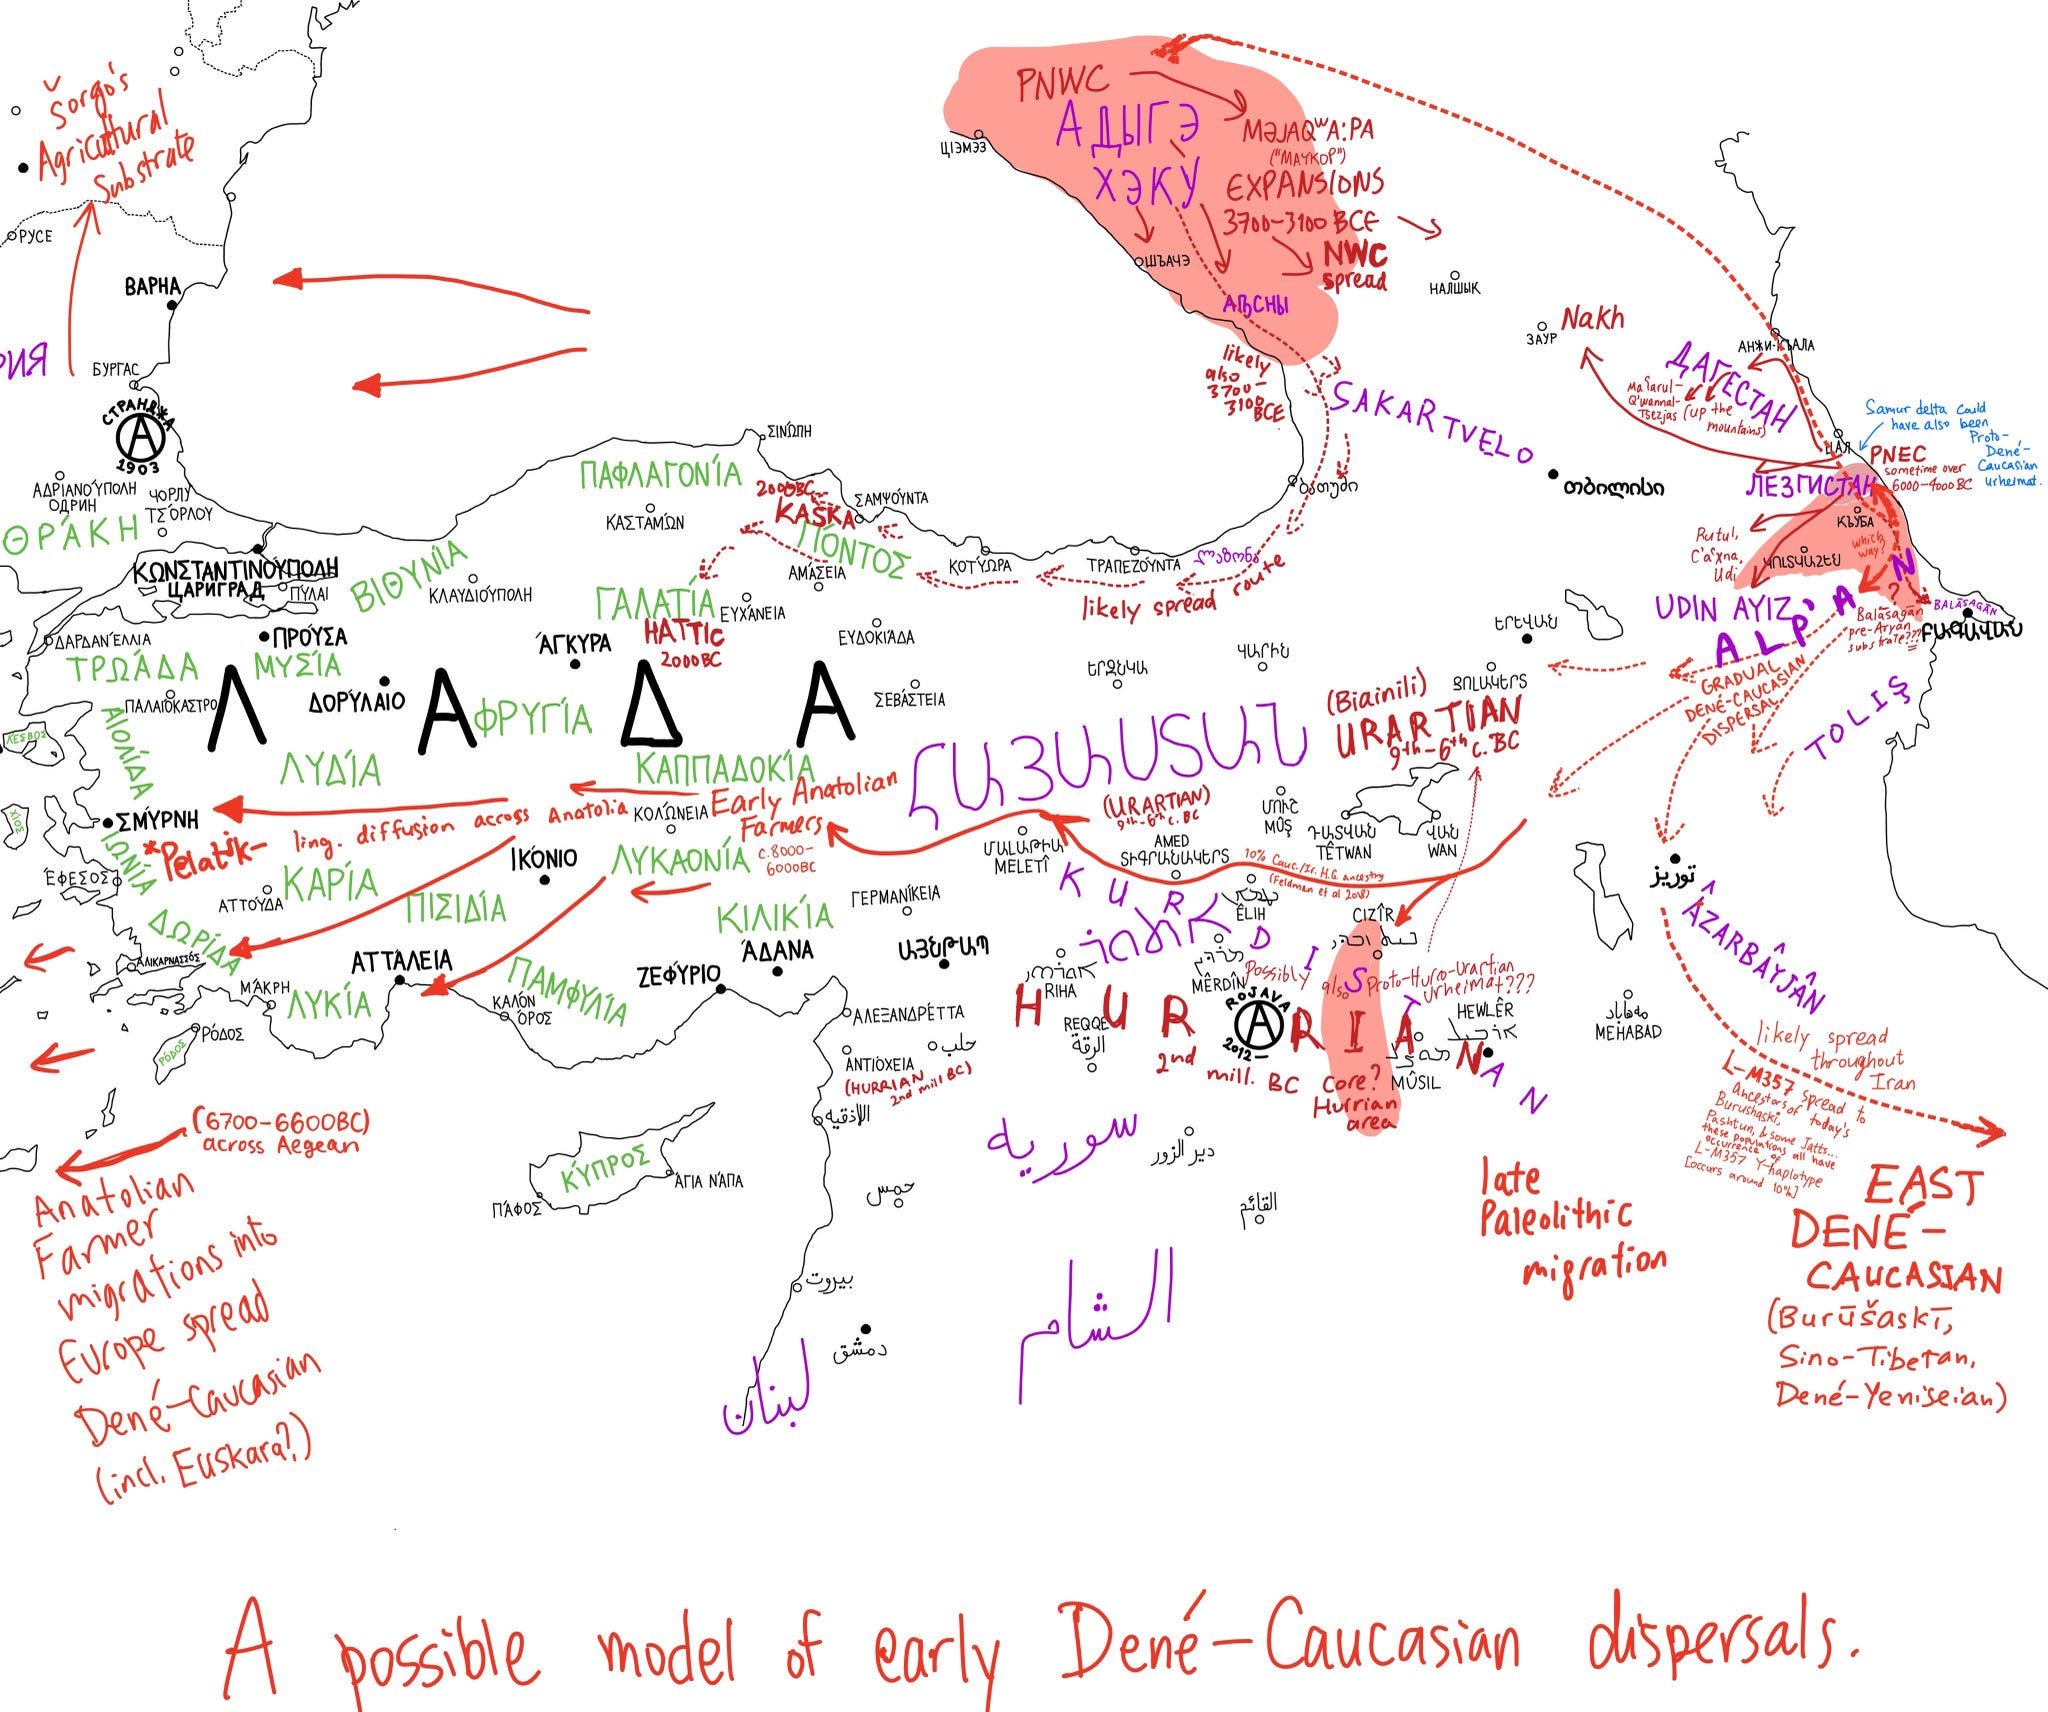 Šorgo's
Agricultural
Substrate
РУСЕ
ВАРНА
БУРГАС
СТРАНДЖА
A
1903
ΑΔΡΙΑΝΟΎΠΟΛΗ
ОДРИН
ЧОРЛУ
ΤΣΌΡΛΟΥ
ΘΡΆΚΗ
ΚΩΝΣΤΑΝΤΙΝΟΎΠΟΛΗ
ЦАРИГРАД
ΠΥΛΑΙ
ΒΙΘΥΝΊΑ
ΚΛΑΥΔΙΟΎΠΟΛΗ
ΔΑΡΔΑΝΈΛΛΙΑ
ΠΡΟΎΣΑ
ΤΡΩΆΔΑ
ΜΥΣΊΑ
ΠΑΛΑΙΌΚΑΣΤΡΟ
ΔΟΡΎΛΑΙΟ
ΆΓΚΥΡΑ
Λ Α Δ Α
ΦΡΥΓΊΑ
ΛΈΣΒΟΣ
ΑΙΟΛΊΔΑ
ΛΥΔΊΑ
ΧΙΟΣ
ΣΜΎΡΝΗ
ΙΩΝΊΑ
*Pelatik-
ling. diffusion across Anatolia
ΈΦΕΣΟΣ
ΑΤΤΟΎΔΑ
ΚΑΡΊΑ
ΠΙΣΙΔΊΑ
ΙΚΌΝΙΟ
ΔΩΡΊΔΑ
ΑΛΙΚΑΡΝΑΣΣΌΣ
ΜΆΚΡΗ
ΛΥΚΊΑ
ΑΤΤΆΛΕΙΑ
ΚΑΛΌΝ
ΌΡΟΣ
ΠΑΜΦΥΛΊΑ
ΡΌΔΟΣ
ΡΌΔΟΣ
ΠΑΦΛΑΓΟΝΊΑ
ΣΙΝΏΠΗ
ΚΑΣΤΑΜΏΝ
2000BC
KASKA
ΣΑΜΨΟΎΝΤΑ
ΠΌΝΤΟΣ
ΑΜΆΣΕΙΑ
ΓΑΛΑΤΊΑ
ΕΥΧΆΝΕΙΑ
HATTIC
2000BC
ΕΥΔΟΚΙΆΔΑ
ΣΕΒΆΣΤΕΙΑ
ΚΟΤΎΩΡΑ
ΤΡΑΠΕΖΟΎΝΤΑ
ლაზონა
likely spread route
ΚΑΠΠΑΔΟΚΊΑ
ΚΟΛΏΝΕΙΑ
Early Anatolian
Farmers
c.8000-
6000BC
ΛΥΚΑΟΝΊΑ
ΚΙΛΙΚΊΑ
ΓΕΡΜΑΝΊΚΕΙΑ
ΖΕΦΎΡΙΟ
ΆΔΑΝΑ
ԱՅՆԹԱՊ
ΑΛΕΞΑΝΔΡΈΤΤΑ
ΑΝΤΙΌΧΕΙΑ
حلب
(HURRIAN
2nd mill BC)
ΚΎΠΡΟΣ
ΠΆΦΟΣ
ΆΓΙΑ ΝΆΠΑ
(6700-6600BC)
across Aegean
Anatolian
Farmer
migrations into
Europe spread
Dené-Caucasian
(incl. Euskara?)
PNWC
АДЫГЭ
ХЭКУ
ЦIЭМЭЗ
MƏJAQʷA:PA
("MAYKOP")
EXPANSIONS
3700-3100 BCE
NWC
spread
ШЪАЧЭ
НАЛШЫК
АҦСНЫ
likely
also
3700-
3100
BCE
SAKARTVELO
ბათუმი
თბილისი
ЗАУР
Nakh
АНЖИ-КЪАЛА
ДАГЕСТАН
Maʕarul-
Q'wannal-
Tsezjas (up the
mountains)
Samur delta could
have also been
Proto-
Dené-
Caucasian
urheimat.
PNEC
sometime over
6000-4000BC
ЛЕЗГИСТАН
КЪУБА
Rutul,
C'aˤxna,
Udi
which
way?
UDIN AYIZ
ALP'AN
?
BALĀSAGĀN
Balāsagān
pre-Aryan
substrate???
GRADUAL
DENÉ-CAUCASIAN
DISPERSAL
TOLIŞ
ԵՐԵՎԱՆ
ԵՐԶՆԿԱ
ԿԱՐԻՆ
(Biainili)
URARTIAN
9th-6th c. BC
ՀԱՅԱՍՏԱՆ
(URARTIAN)
9th-6th c. BC
ՄՈՒՇ
MÛŞ
ԴԱՏՎԱՆ
TÊTWAN
ՎԱՆ
WAN
ՄԱԼԱԹԻԱ
MELETÎ
AMED
ՏԻԳՐԱՆԱԿԵՐՏ
10% Cauc./Ir. H.G. ancestry
(Feldman et al 2018)
KURDISTAN
ÊLIH
CIZÎR
RIHA
MÊRDÎN
Possibly also Proto-Hurro-Urartian
urheimat???
HURRIAN
2nd
mill. BC
ROJAVA
A
2012-
REQQE
الرقة
HEWLÊR
MÛSIL
Core?
Hurrian
area
مەهاباد
MEHABAD
توریز
ÂZARBÂYJÂN
likely spread
throughout
Iran
L-M357 spread to
ancestors of today's
Burushaski,
Pashtun, & some Jatts...
these populations all have
occurrence of
L-M357 Y-haplotype
[occurs around 10%]
EAST
DENÉ-
CAUCASIAN
(Burūšaskī,
Sino-Tibetan,
Dené-Yeniseian)
late
Paleolithic
migration
سوريه
دير الزور
القائم
حمس
بيروت
دمشق
لبنان
الشام
A possible model of early Dené-Caucasian dispersals.